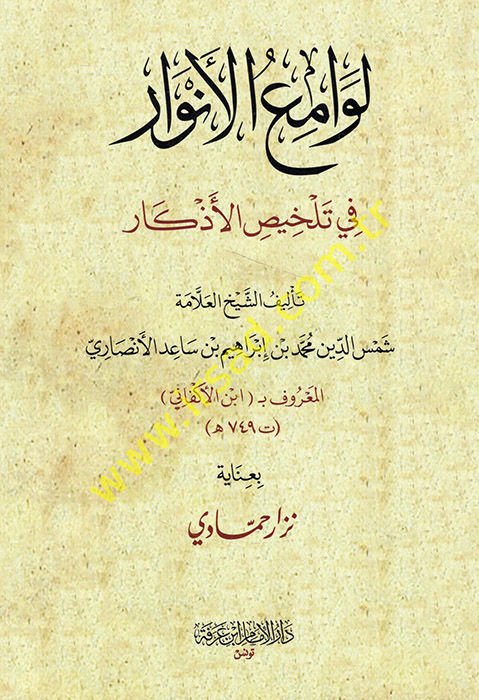 لَوَامِعُ الأَنْوَار
فِي تَلْخِيصِ الأَذْكَار
تَأْلِيفُ الشَّيْخ العَلَّامَة
شَمْس الدِّين مُحَمَّد بْن إِبْرَاهِيم بْن سَاعِد الأَنْصَارِيّ
المَعْرُوف بـ ( ابْن الأَكْفَانِيّ )
(ت ٧٤٩ هـ)
بِعِنَايَة
نزار حمّادي
دَارُ الإِمَام ابْن عَرَفَة
تونس
www.irsad.com.tr